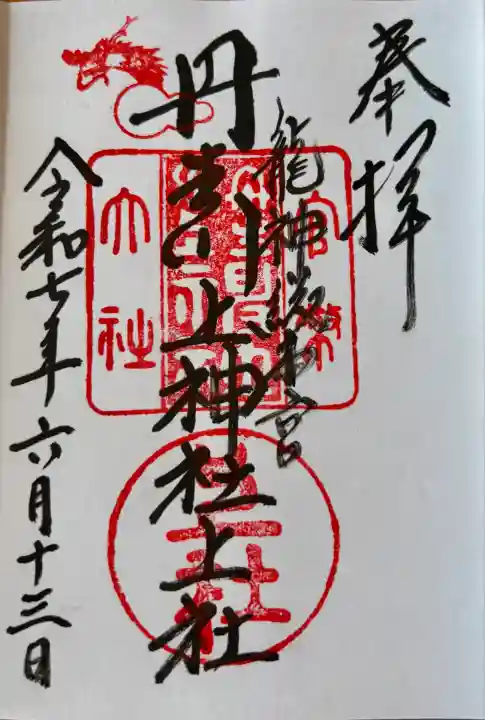 奉拝
龍神総本宮
丹生川上神社上社
令和七年六月十三日
官幣
大社
上社